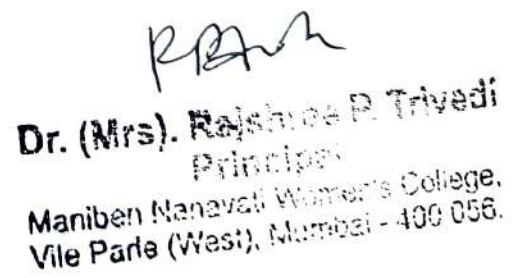 Dr. (Mrs). Rajshree P. Trivedi
Principal
Maniben Nanavati Women's College,
Vile Parle (West), Mumbai - 400 056.